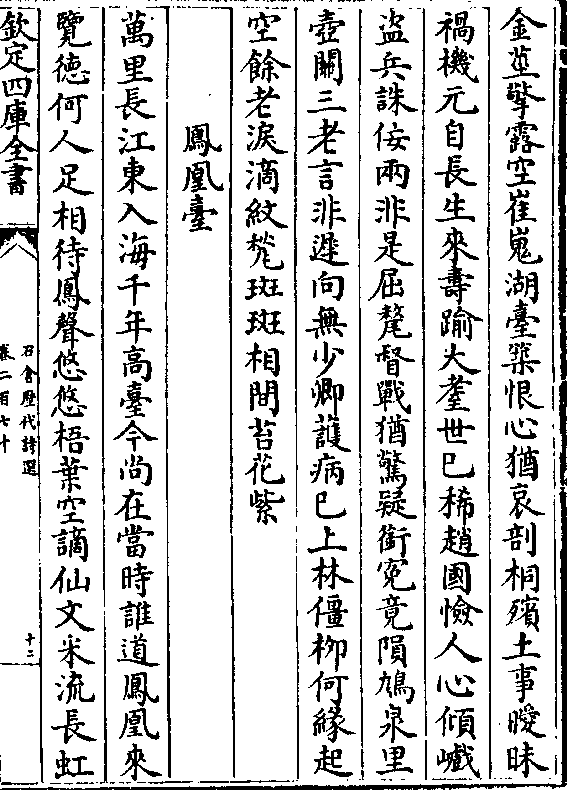 金莖擎露空崔嵬湖臺築恨心猶哀剖桐殯土事曖昧
禍機元自長生來壽踰大耋世已稀趙國憸人心傾巇
盜兵誅佞兩非是屈氂督戰猶驚疑銜寃竟隕鳩泉里
壺關三老言非遲向無少卿䕶病已上林僵柳何緣起
空餘老淚滴紋㲠斑斑相間苔花紫
鳳凰臺
萬里長江東入海千年高臺今尚在當時誰道鳳凰來
覽德何人足相待鳳聲悠悠梧葉空謫仙文米流長虹
欽定四庫全書
石倉歷代詩選
卷二百六十
十二